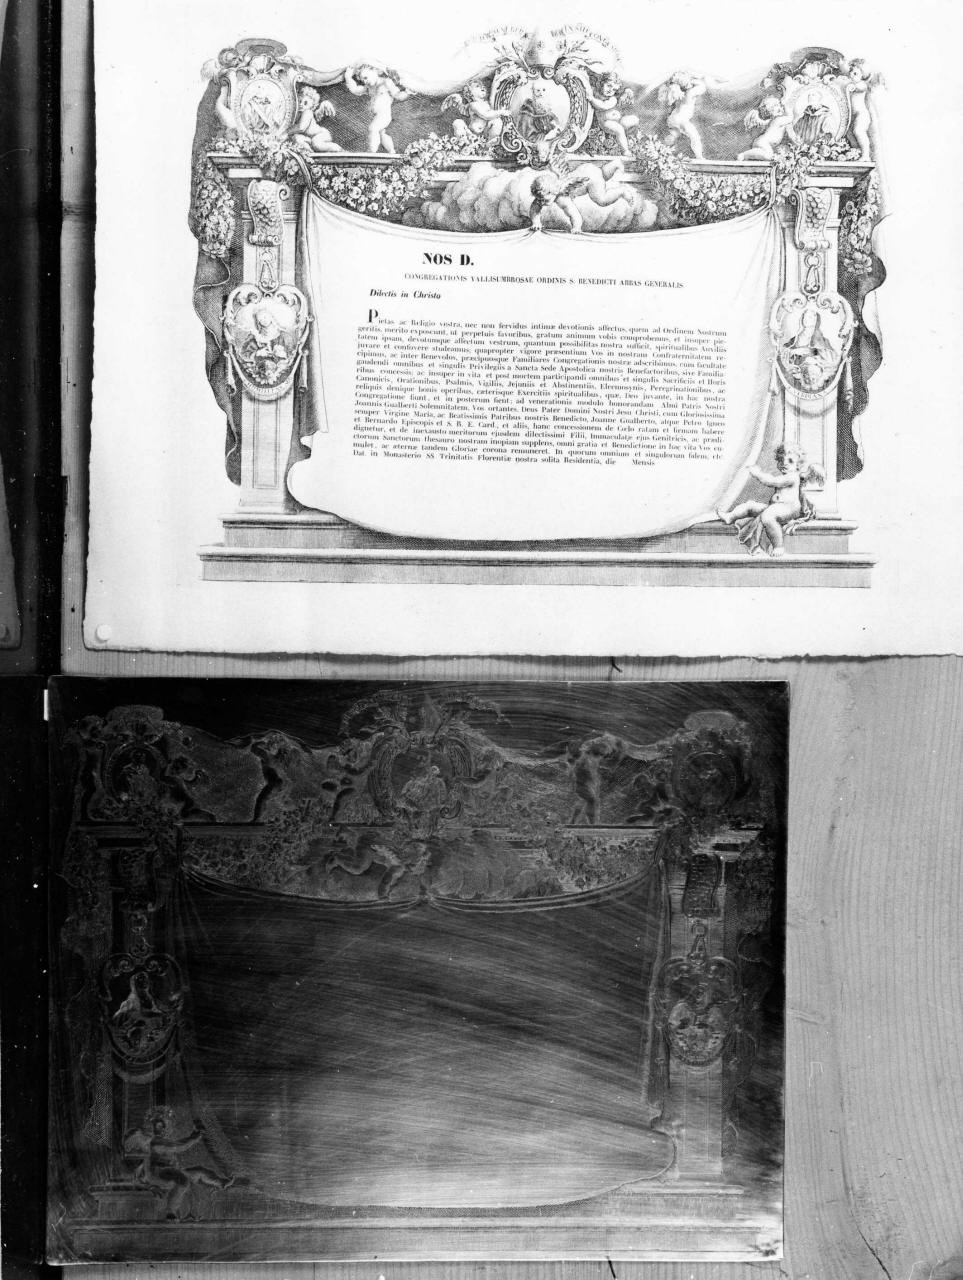 NOS D.
CONGREGATIONIS VALLISUMBROSAE ORDINIS S. BENEDICTI ABBAS GENERALIS.
Dilectis in Christo
Pietas ac Religio vestra, nec non fervidus intimæ devotionis affectus, quem ad Ordinem Nostrum
geritis, merito exposcunt, ut perpetuis favoribus, gratum animum vobis comprobemus, et insuper pie-
tatem ipsam, devotumque affectum vestrum, quantum possibilitas nostra sufficit, spiritualibus Auxiliis
juvare et confovere studeamus; quapropter vigore præsentium Vos in nostram Confraternitatem re-
cipimus, ac inter Benevolos, præcipuosque Familiares Congregationis nostræ adscribimus, cum facultate
gaudendi omnibus et singulis Privilegiis a Sancta Sede Apostolica nostris Benefactoribus, sive Familia-
ribus concessis; ac insuper in vita et post mortem participandi omnibus et singulis Sacrificiis et Horis
Canonicis, Orationibus, Psalmis, Vigiliis, Jejuniis et Abstinentiis, Eleemosynis, Peregrinationibus, ac
reliquis denique bonis operibus, cæterisque Exercitiis spiritualibus, quæ, Deo juvante, in hac nostra
Congregatione fiunt, et in posterum fient; ad venerationis modulo honorandam Almi Patris Nostri
Joannis Gualberti Solemnitatem, Vos ortantes. Deus Pater Domini Nostri Jesu Christi, cum Gloriosissima
semper Virgine Maria, ac Beatissimis Patribus nostris Benedicto, Joanne Gualberto, atque Petro Igneo
et Bernardo Episcopis et S. R. E. Card., et aliis, hanc concessionem de Cœlo ratam et firmam habere
dignetur, et de inexausto meritorum ejusdem dilectissimi Filii, Immaculatæ ejus Genitricis, ac prædi-
ctorum Sanctorum thesauro nostram inopiam supplens, omni gratia et Benedictione in hac vita Vos cu-
mulet, ac æternæ tandem Gloriæ corona remuneret. In quorum omnium et singulorum fidem, etc.
Dat. in Monasterio SS. Trinitatis Florentiæ nostra solita Residentia, die Mensis